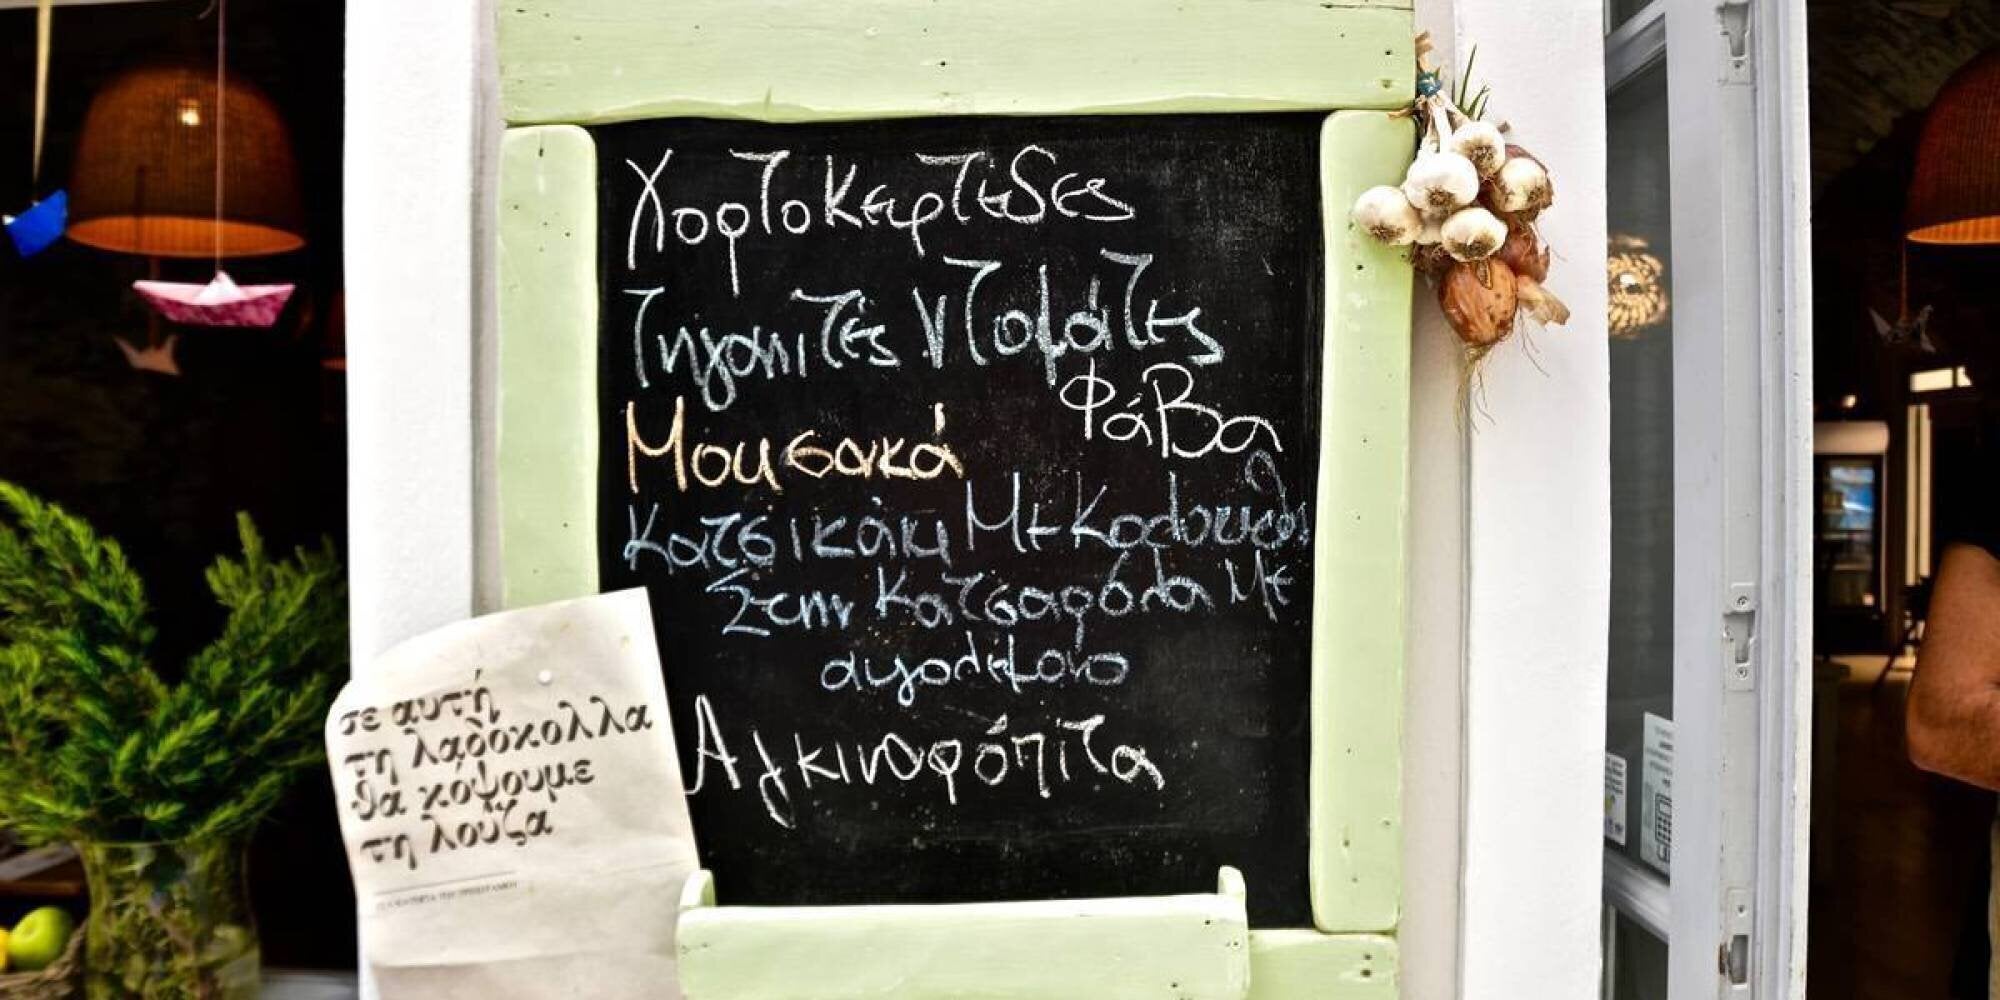 Χορτοκεφτέδες
Τηγανιτές ντομάτες
Φάβα
Μουσακά
Κατσικάκι Με Κολοκύθι
Στην Κατσαρόλα Με
αυγολέμονο
Αγκιναρόπιτα
σε αυτή
τη λαδόκολλα
θα κόψουμε
τη λούζα